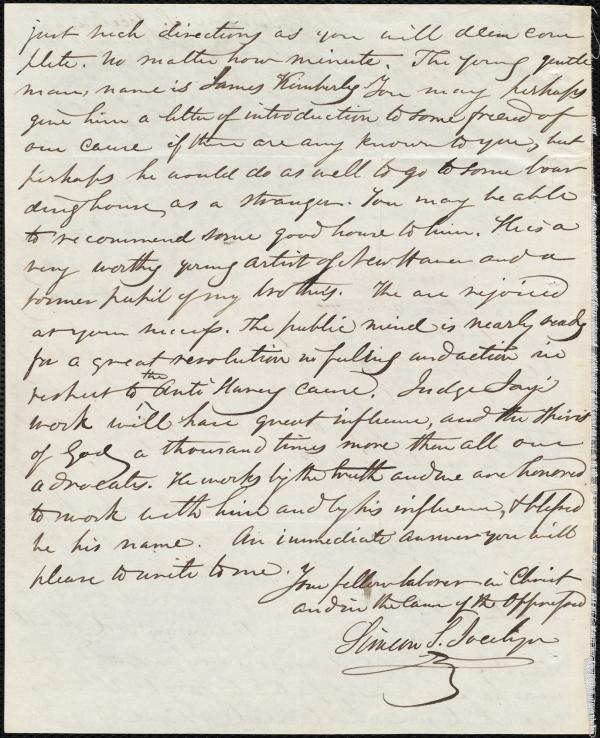 just such directions as you will deem com
plete. No matter how minute. The young gentle
man, name is James Kimberly You may perhaps
give him a letter of introduction to some friend of
our cause if there are any known to you, but
perhaps he would do as well to go to some boar
ding house, as a stranger. You may be able
to recommend some good house to him. He is a
very worthy young artist of New Haven and a
former pupil of my brothers. We are rejoiced
at your success. The public mind is nearly ready
for a great revolution in feeling and action in
respect to the Anti Slavery cause. Judge Jay's
work will have great influence, and the Spirit
of God, a thousand times more than all our
advocates. He works by the truth and we are honored
to work with him and by his influence, & blessed
be his name. An immediate answer you will
please to write to me.
Your fellow laborer in Christ
and in the cause of the Oppressed
Simeon S. Jocelyn